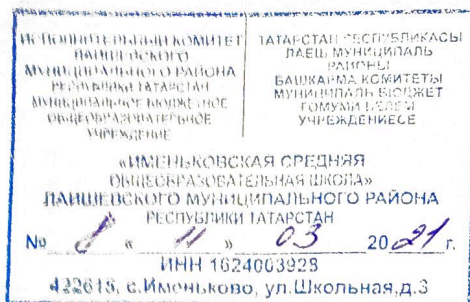 ИСПОЛНИТЕЛЬНЫЙ КОМИТЕТ
ЛАИШЕВСКОГО
МУНИЦИПАЛЬНОГО РАЙОНА
РЕСПУБЛИКИ ТАТАРСТАН
МУНИЦИПАЛЬНОЕ БЮДЖЕТНОЕ
ОБЩЕОБРАЗОВАТЕЛЬНОЕ
УЧРЕЖДЕНИЕ
ТАТАРСТАН РЕСПУБЛИКАСЫ
ЛАЕШ МУНИЦИПАЛЬ
РАЙОНЫ
БАШКАРМА КОМИТЕТЫ
МУНИЦИПАЛЬ БЮДЖЕТ
ГОМУМИ БЕЛЕМ
УЧРЕЖДЕНИЕСЕ
«ИМЕНЬКОВСКАЯ СРЕДНЯЯ
ОБЩЕОБРАЗОВАТЕЛЬНАЯ ШКОЛА»
ЛАИШЕВСКОГО МУНИЦИПАЛЬНОГО РАЙОНА
РЕСПУБЛИКИ ТАТАРСТАН
№ 8 « 11 » 03 2021 г.
ИНН 1624003928
422618, с.Именьково, ул.Школьная,д.3